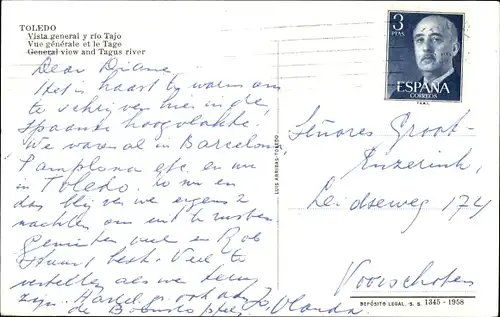 TOLEDO
Vista general y río Tajo
Vue générale et le Tage
General view and Tagus river
Dear Diana
Het is haast te warm om
te schrijven hier in de
Spaanse hoogvlakte.
We waren al in Barcelona
Pamplona etc. en nu
in Toledo.
dag blijven we ergens 2
nachten om uit te rusten.
Genieten veel en Rob
stuurt best. Veel te
vertellen als we terug
zijn. Hartel. gr. ook aan
de
3
PTAS
ESPAÑA
CORREOS
F.N.M.T.
LUIS ARRIBAS-TOLEDO
Señores Groot-
Enzerink,
Leidseweg 174
Voorschoten
Olanda
DEPÓSITO LEGAL. S. S. 1345 - 1958